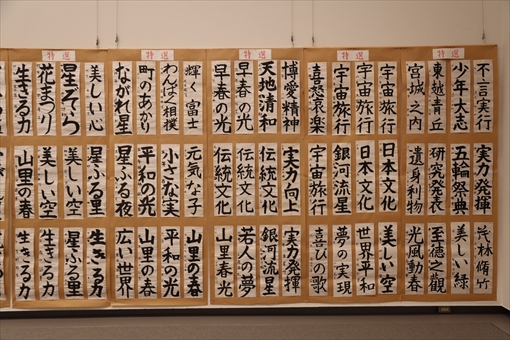 特選
特選
特選
特選
特選
不言実行
少年大志
東越青丘
宮城之内
宇宙旅行
宇宙旅行
宇宙旅行
喜怒哀楽
博愛精神
天地清和
早春の光
早春の光
輝く富士
わんぱく相撲
町のあかり
ながれ星
美しい心
星ぞら
花まつり
生きる力
実力発揮
五輪祭典
研究発表
遺身利物
日本文化
日本文化
銀河流星
宇宙旅行
実力向上
伝統文化
伝統文化
伝統文化
元気な子
小さな実
平和の光
星ふる夜
美しい空
星ふる里
美しい空
山里の春
茂林脩竹
美しい緑
至徳之観
光風動春
美しい空
世界平和
夢の実現
喜びの歌
実力発揮
銀河流星
若人の夢
山里春光
山里の春
平和の光
山里の春
広い世界
生きる力
星ふる里
生きる力
生きる力